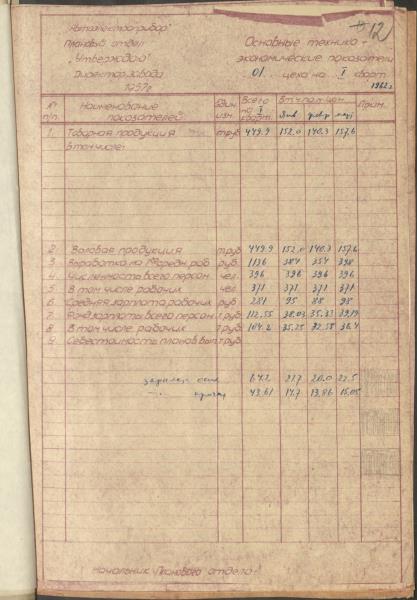 12
Автоэлектроприбор"
Плановый отдел
„Утверждаю"
Директор завода
1957г.
Основные технико-
экономические показатели
01. цеха на I кварт
1962г
№ п/п. Наименование показателей Един изм. Всего на I кварт. В т.ч. по м-цам Прим.
Янв февр март
1. Товарная продукция т.руб 449.9 152.0 140.3 157.6
В том числе:
2. Валовая продукция т.руб 449.9 152.0 140.3 157.6
3. Выработка на 1 средн. раб руб. 1136 384 354 398
4. Численность всего персон чел. 396 396 396 396
5. В том числе рабочих чел. 371 371 371 371
6. Средняя зарплата рабочих руб 281 95 88 98
7. Фонд зарплаты всего персон т.руб 112.55 38.03 35.33 39.19
8. В том числе рабочих т.руб 104.2 35.25 32.55 36.4
9. Себестоимость планов вып т.руб
64.2 21.7 20.0 22.5
43.61 14.7 13.86 15.05
Начальник Планового отдела: